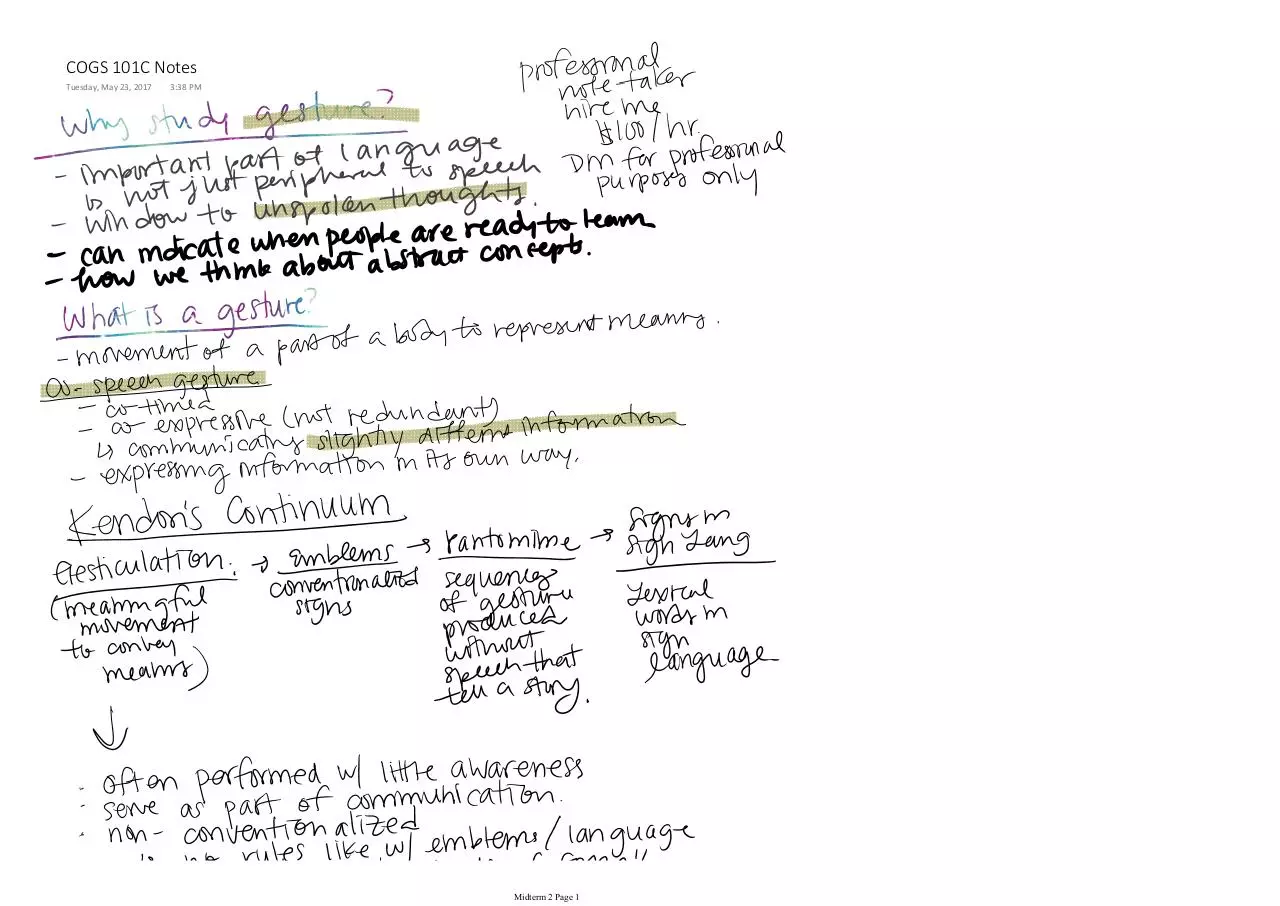 COGS 101C Notes
Tuesday, May 23, 2017 3:38 PM
professional
note taker
hire me
$100/hr.
DM for professional
purposes only
Why study gesture?
- important part of language
↳ not just peripheral to speech
- window to unspoken thoughts.
- can indicate when people are ready to learn
- how we think about abstract concepts.
What is a gesture?
- movement of a part of a body to represent meaning.
co-speech gesture
- co-timed
- co expressive (not redundant)
↳ communicating slightly different information
- expressing information in its own way.
Kendon's Continuum
Gesticulation: → emblems → Pantomime → signs in sign Lang
(meaningful
movement
to convey
meaning)
conventionalized
signs
sequences
of gesture
produced
without
speech that
tell a story.
Lexical
words in
sign
language
↓
· often performed w/ little awareness
· serve as part of communication.
· non-conventionalized
↳ no rules like w/ emblems/language
Midterm 2 Page 1